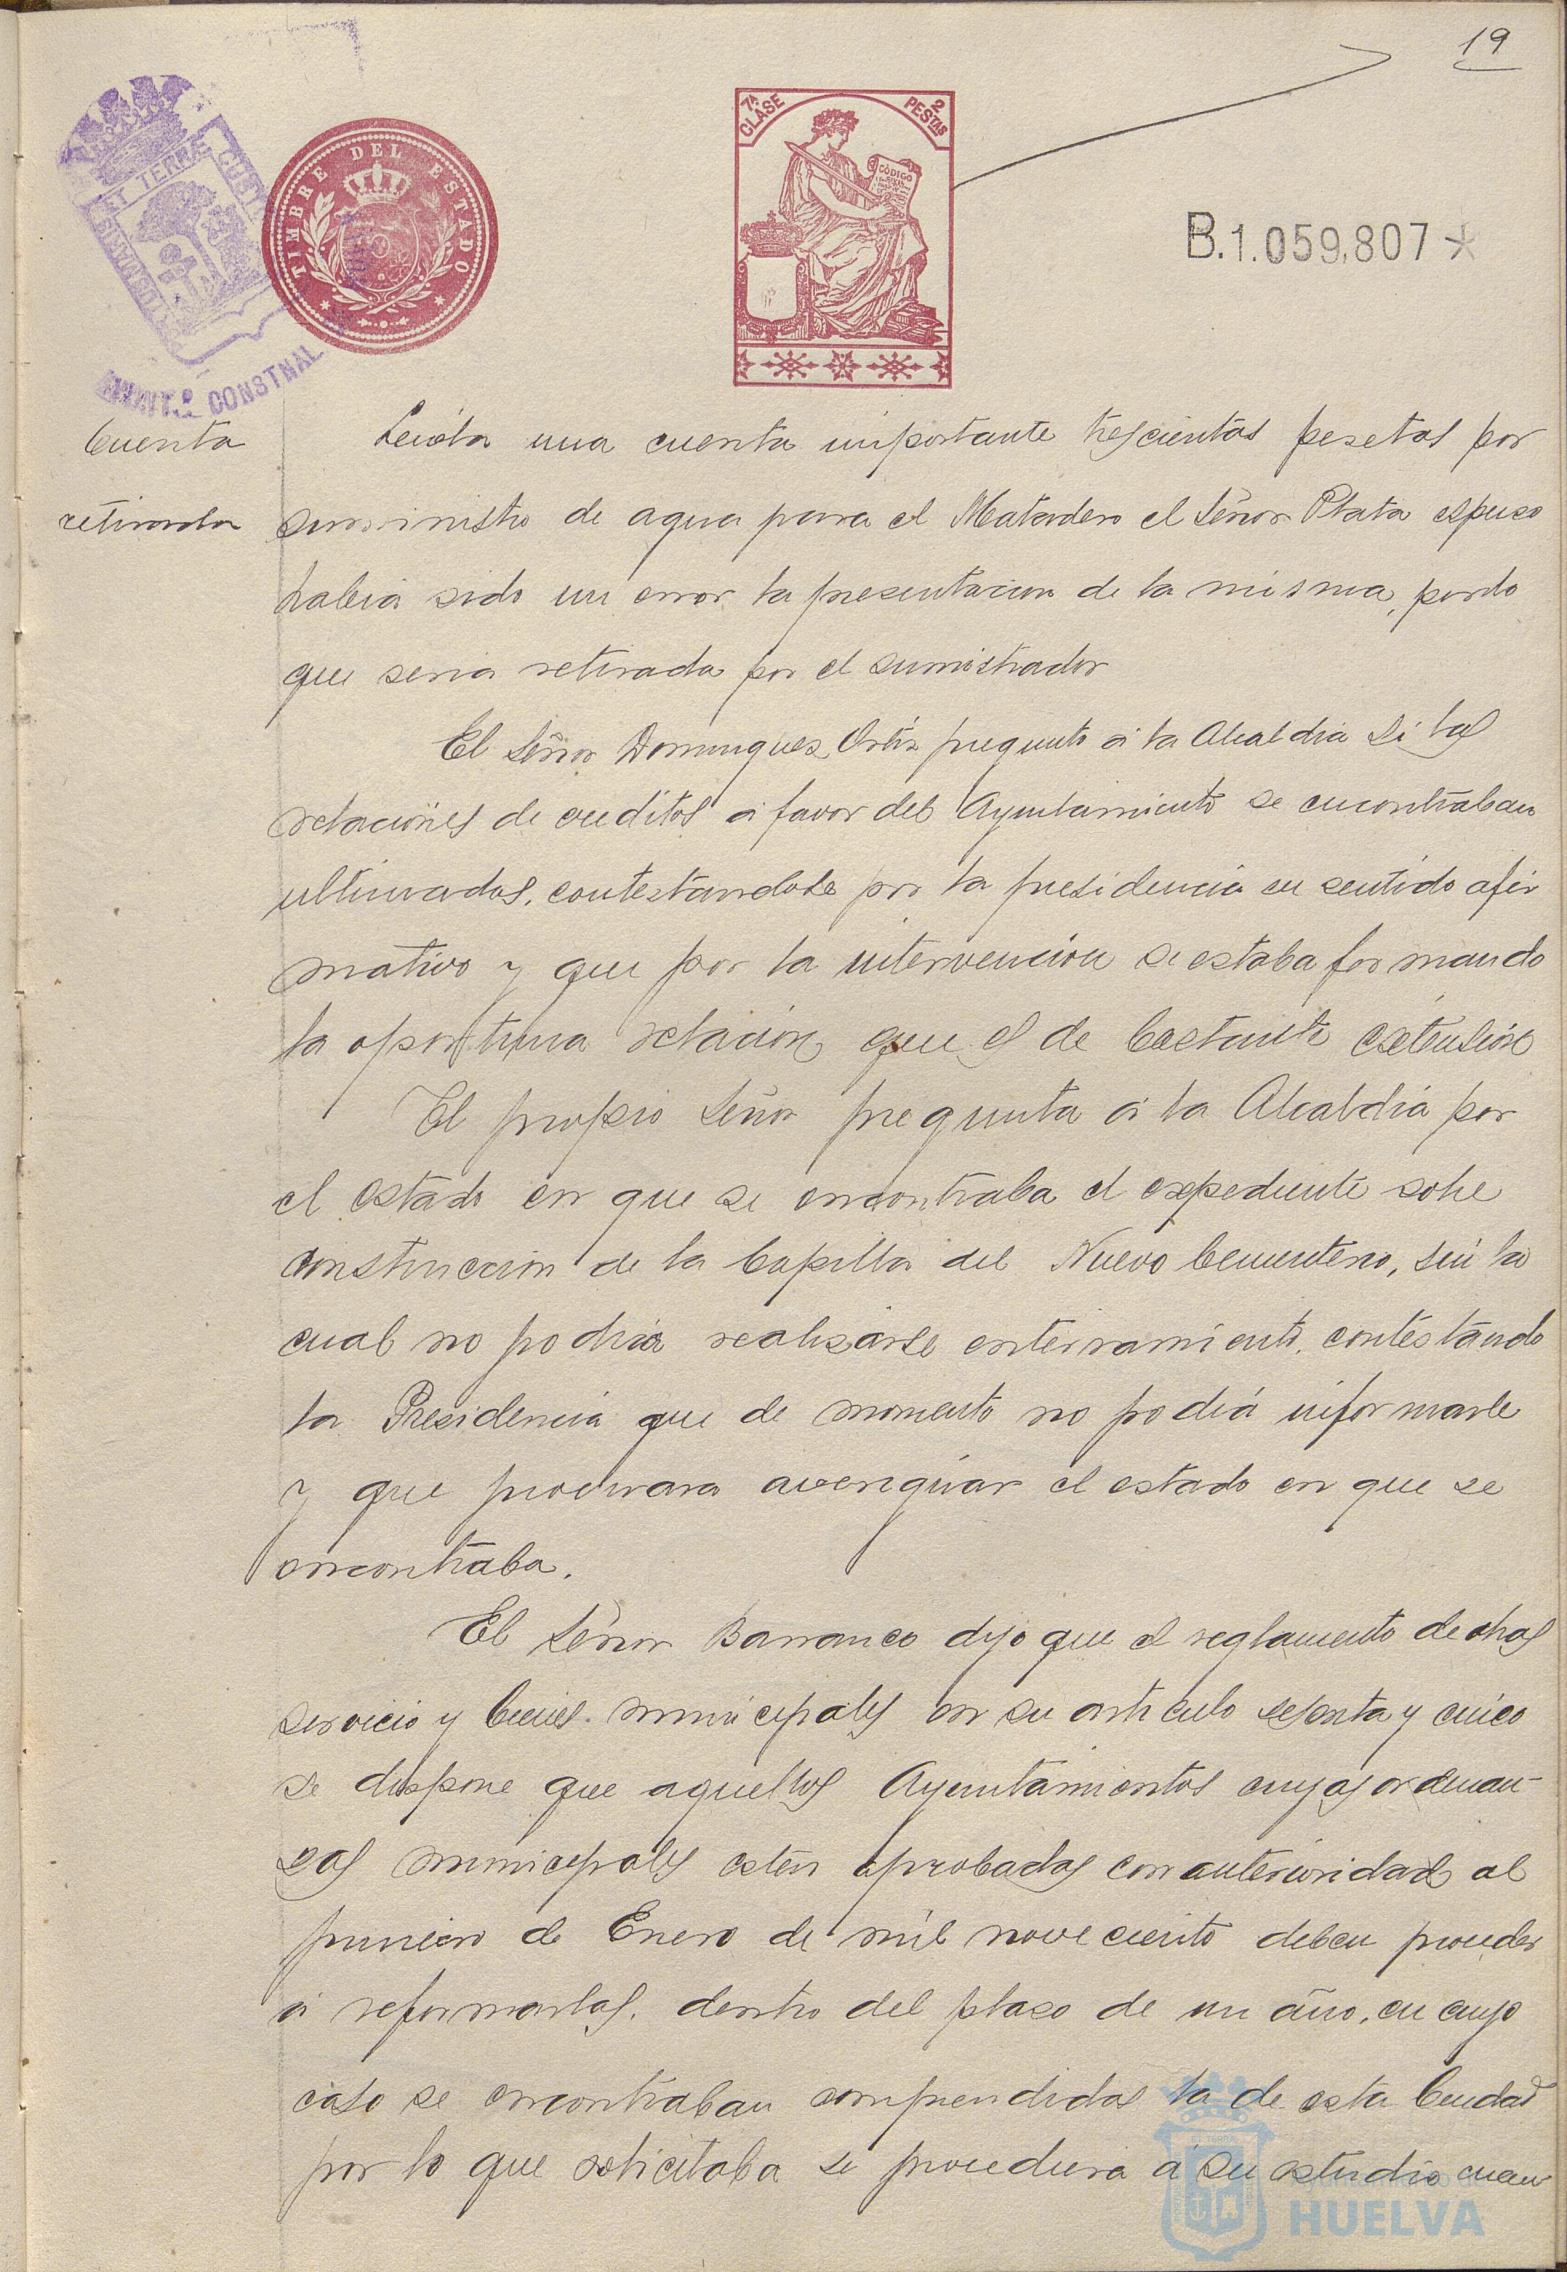 19
7ª CLASE
2 PESTAS
CÓDIGO
TIMBRE DEL ESTADO
ET TERRÆ CUST
CONSTNAL
B.1.059.807 *
Cuenta
retirada
Leida una cuenta importante trescientas pesetas por
suministro de agua para el Matadero el Señor Plata espuso
habia sido un error la presentacion de la misma, por lo
que seria retirada por el sumistrador
El Señor Domingues Ortiz pregunto á la Alcaldia si las
relaciones de creditos á favor del Ayuntamiento se encontraban
ultimadas, contestandole por la presidencia en sentido afir
mativo y que por la intervencion se estaba formando
la oportuna relación que es de bastante extensión
El propio Señor pregunta á la Alcaldia por
el estado en que se encontraba el expediente sobre
construccion de la Capilla del Nuevo Cementerio, sin la
cual no podria realizarse enterramiento, contestando
la Presidencia que de momento no podia informarle
y que procurara averiguar el estado en que se
encontraba.
El Señor Barranco dijo que el reglamento de obras
servicio y bienes municipales en su articulo sesenta y cinco
se dispone que aquellos Ayuntamientos cuyas ordenan-
zas municipales estén aprobadas con anterioridad al
primero de Enero de mil noveciento deben proceder
á reformarlas, dentro del plazo de un año, en cuyo
caso se encontraban comprendidas la de esta Ciudad
por lo que solicitaba se procediera á su estudio cuan
Ayuntamiento de
HUELVA